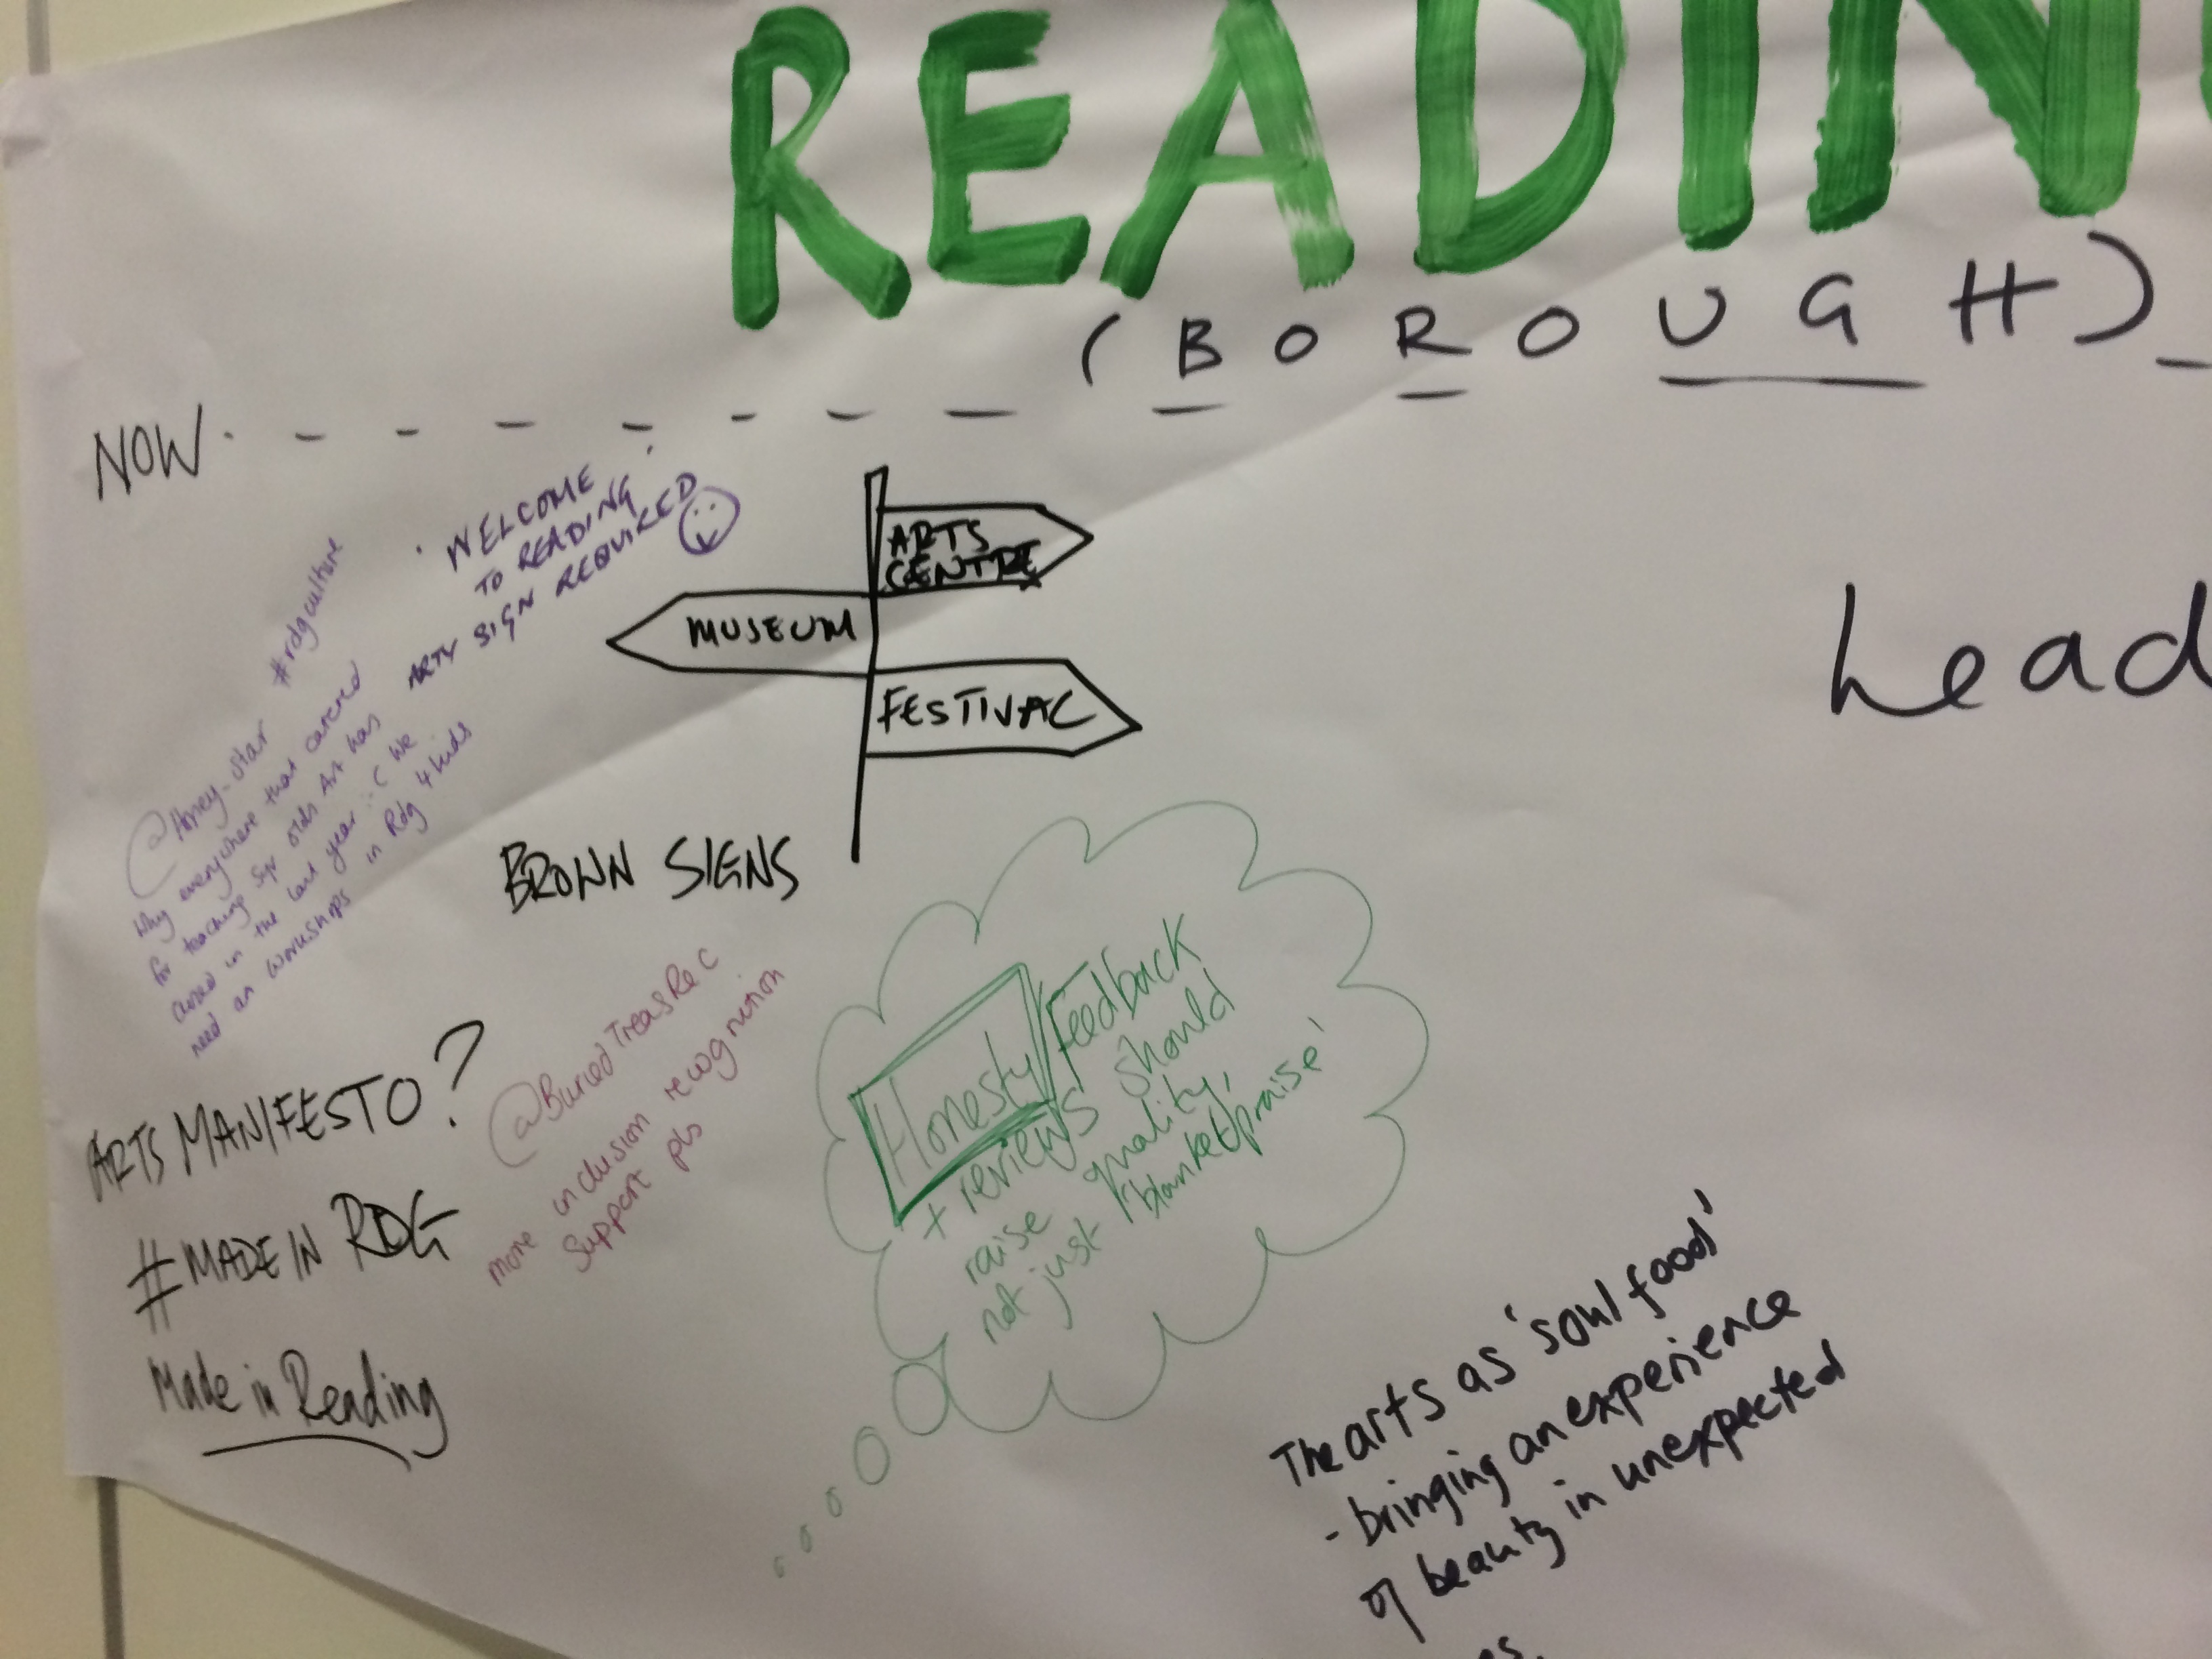 READIN
(BOROUGH)
NOW
WELCOME
TO READING
ARTY SIGN REQUIRED
ARTS
CENTRE
MUSEUM
FESTIVAL
BROWN SIGNS
#rdgculture
@Honey_star
Why everywhere that catered
for teaching 5yr olds Art has
closed in the last year :-( We
need art workshops in Rdg 4 kids
Lead
ARTS MANIFESTO?
#MADE IN RDG
Made in Reading
@BuriedTreasRec
more inclusion recognition
support pls
Honesty feedback
+ reviews should
raise quality,
not just 'blanket praise'
The arts as 'soul food'
- bringing an experience
of beauty in unexpected